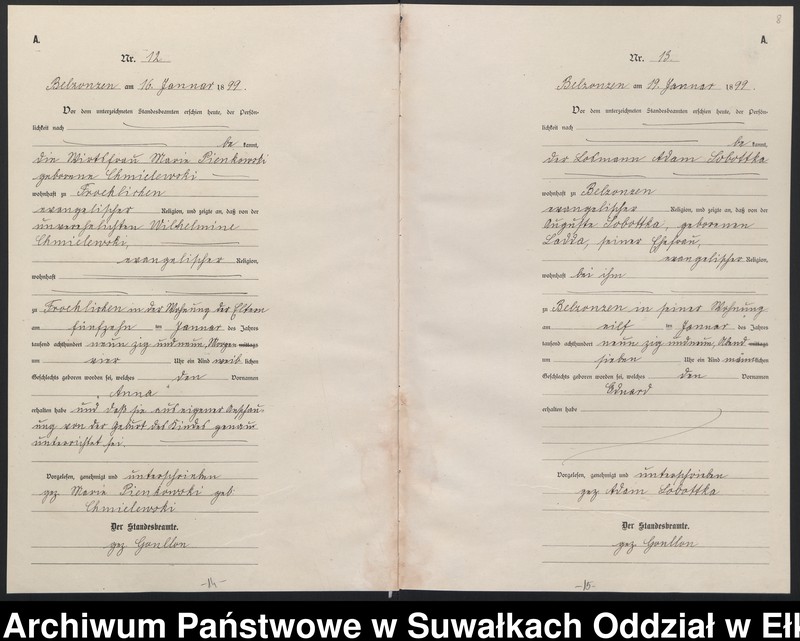 A.
Nr. 12
Belzonzen am 16. Januar 1899.
Vor dem unterzeichneten Standesbeamten erschien heute, der Persön-
lichkeit nach
be kannt,
die Wirtsfrau Marie Pienkowski
geborene Chmielewski
wohnhaft zu Froehlichen
evangelischer Religion, und zeigte an, daß von der
unverehelichten Wilhelmine
Chmielewski,
evangelischer Religion,
wohnhaft
zu Froehlichen in der Wohnung der Eltern
am fünfzehn ten Januar des Jahres
tausend achthundert neunzig und neun, Morgens mittags
um vier Uhr ein Kind weib lichen
Geschlechts geboren worden sei, welches den Vornamen
"Anna"
erhalten habe und daß sie aus eigener Anschau-
ung von der Geburt des Kindes genau
unterrichtet sei.
Vorgelesen, genehmigt und unterschrieben
gez Marie Pienkowski geb
Chmielewski
Der Standesbeamte.
gez Gonllon
-14-
8
A.
Nr. 13
Belzonzen am 19. Januar 1899.
Vor dem unterzeichneten Standesbeamten erschien heute, der Persön-
lichkeit nach
be kannt,
der Losmann Adam Sobottka
wohnhaft zu Belzonzen
evangelischer Religion, und zeigte an, daß von der
Auguste Sobottka, geborenen
seiner Ehefrau,
evangelischer Religion,
wohnhaft bei ihm
zu Belzonzen in seiner Wohnung
am eilf ten Januar des Jahres
tausend achthundert neunzig und neun, Abend mittags
um sieben Uhr ein Kind männlichen
Geschlechts geboren worden sei, welches den Vornamen
Eduard
erhalten habe
Vorgelesen, genehmigt und unterschrieben
gez Adam Sobottka
Der Standesbeamte.
gez Gonllon
-15-
Archiwum Państwowe w Suwałkach Oddział w Eł